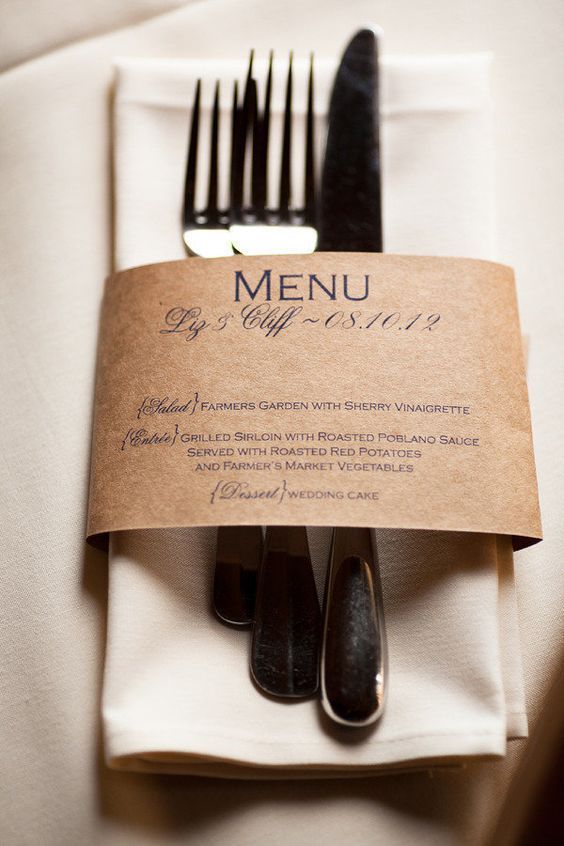 MENU
Liz & Cliff ~ 08.10.12
{Salad} FARMERS GARDEN WITH SHERRY VINAIGRETTE
{Entrée} GRILLED SIRLOIN WITH ROASTED POBLANO SAUCE
SERVED WITH ROASTED RED POTATOES
AND FARMER'S MARKET VEGETABLES
{Dessert} WEDDING CAKE